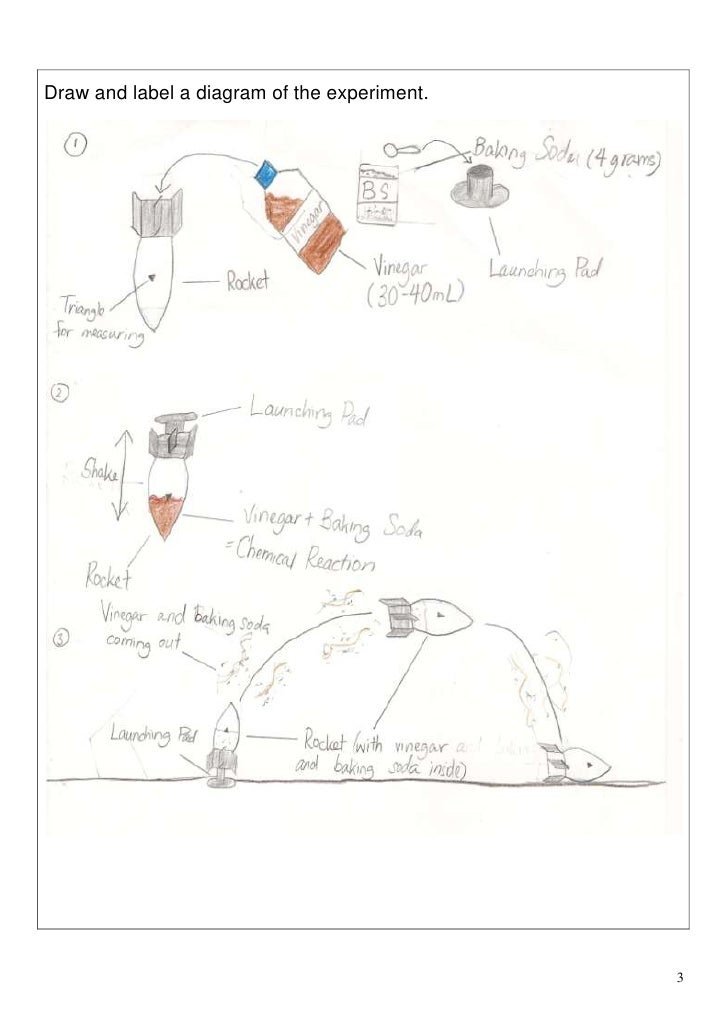 Draw and label a diagram of the experiment.
1
Baking Soda (4 grams)
BS
Vinegar
Rocket
Vinegar
(30-40mL)
Launching Pad
Triangle
for measuring
2
Launching Pad
Shake
Vinegar + Baking Soda
= Chemical Reaction
Rocket
3
Vinegar and baking soda
coming out
Launching Pad
Rocket (with vinegar
and baking soda inside)
3